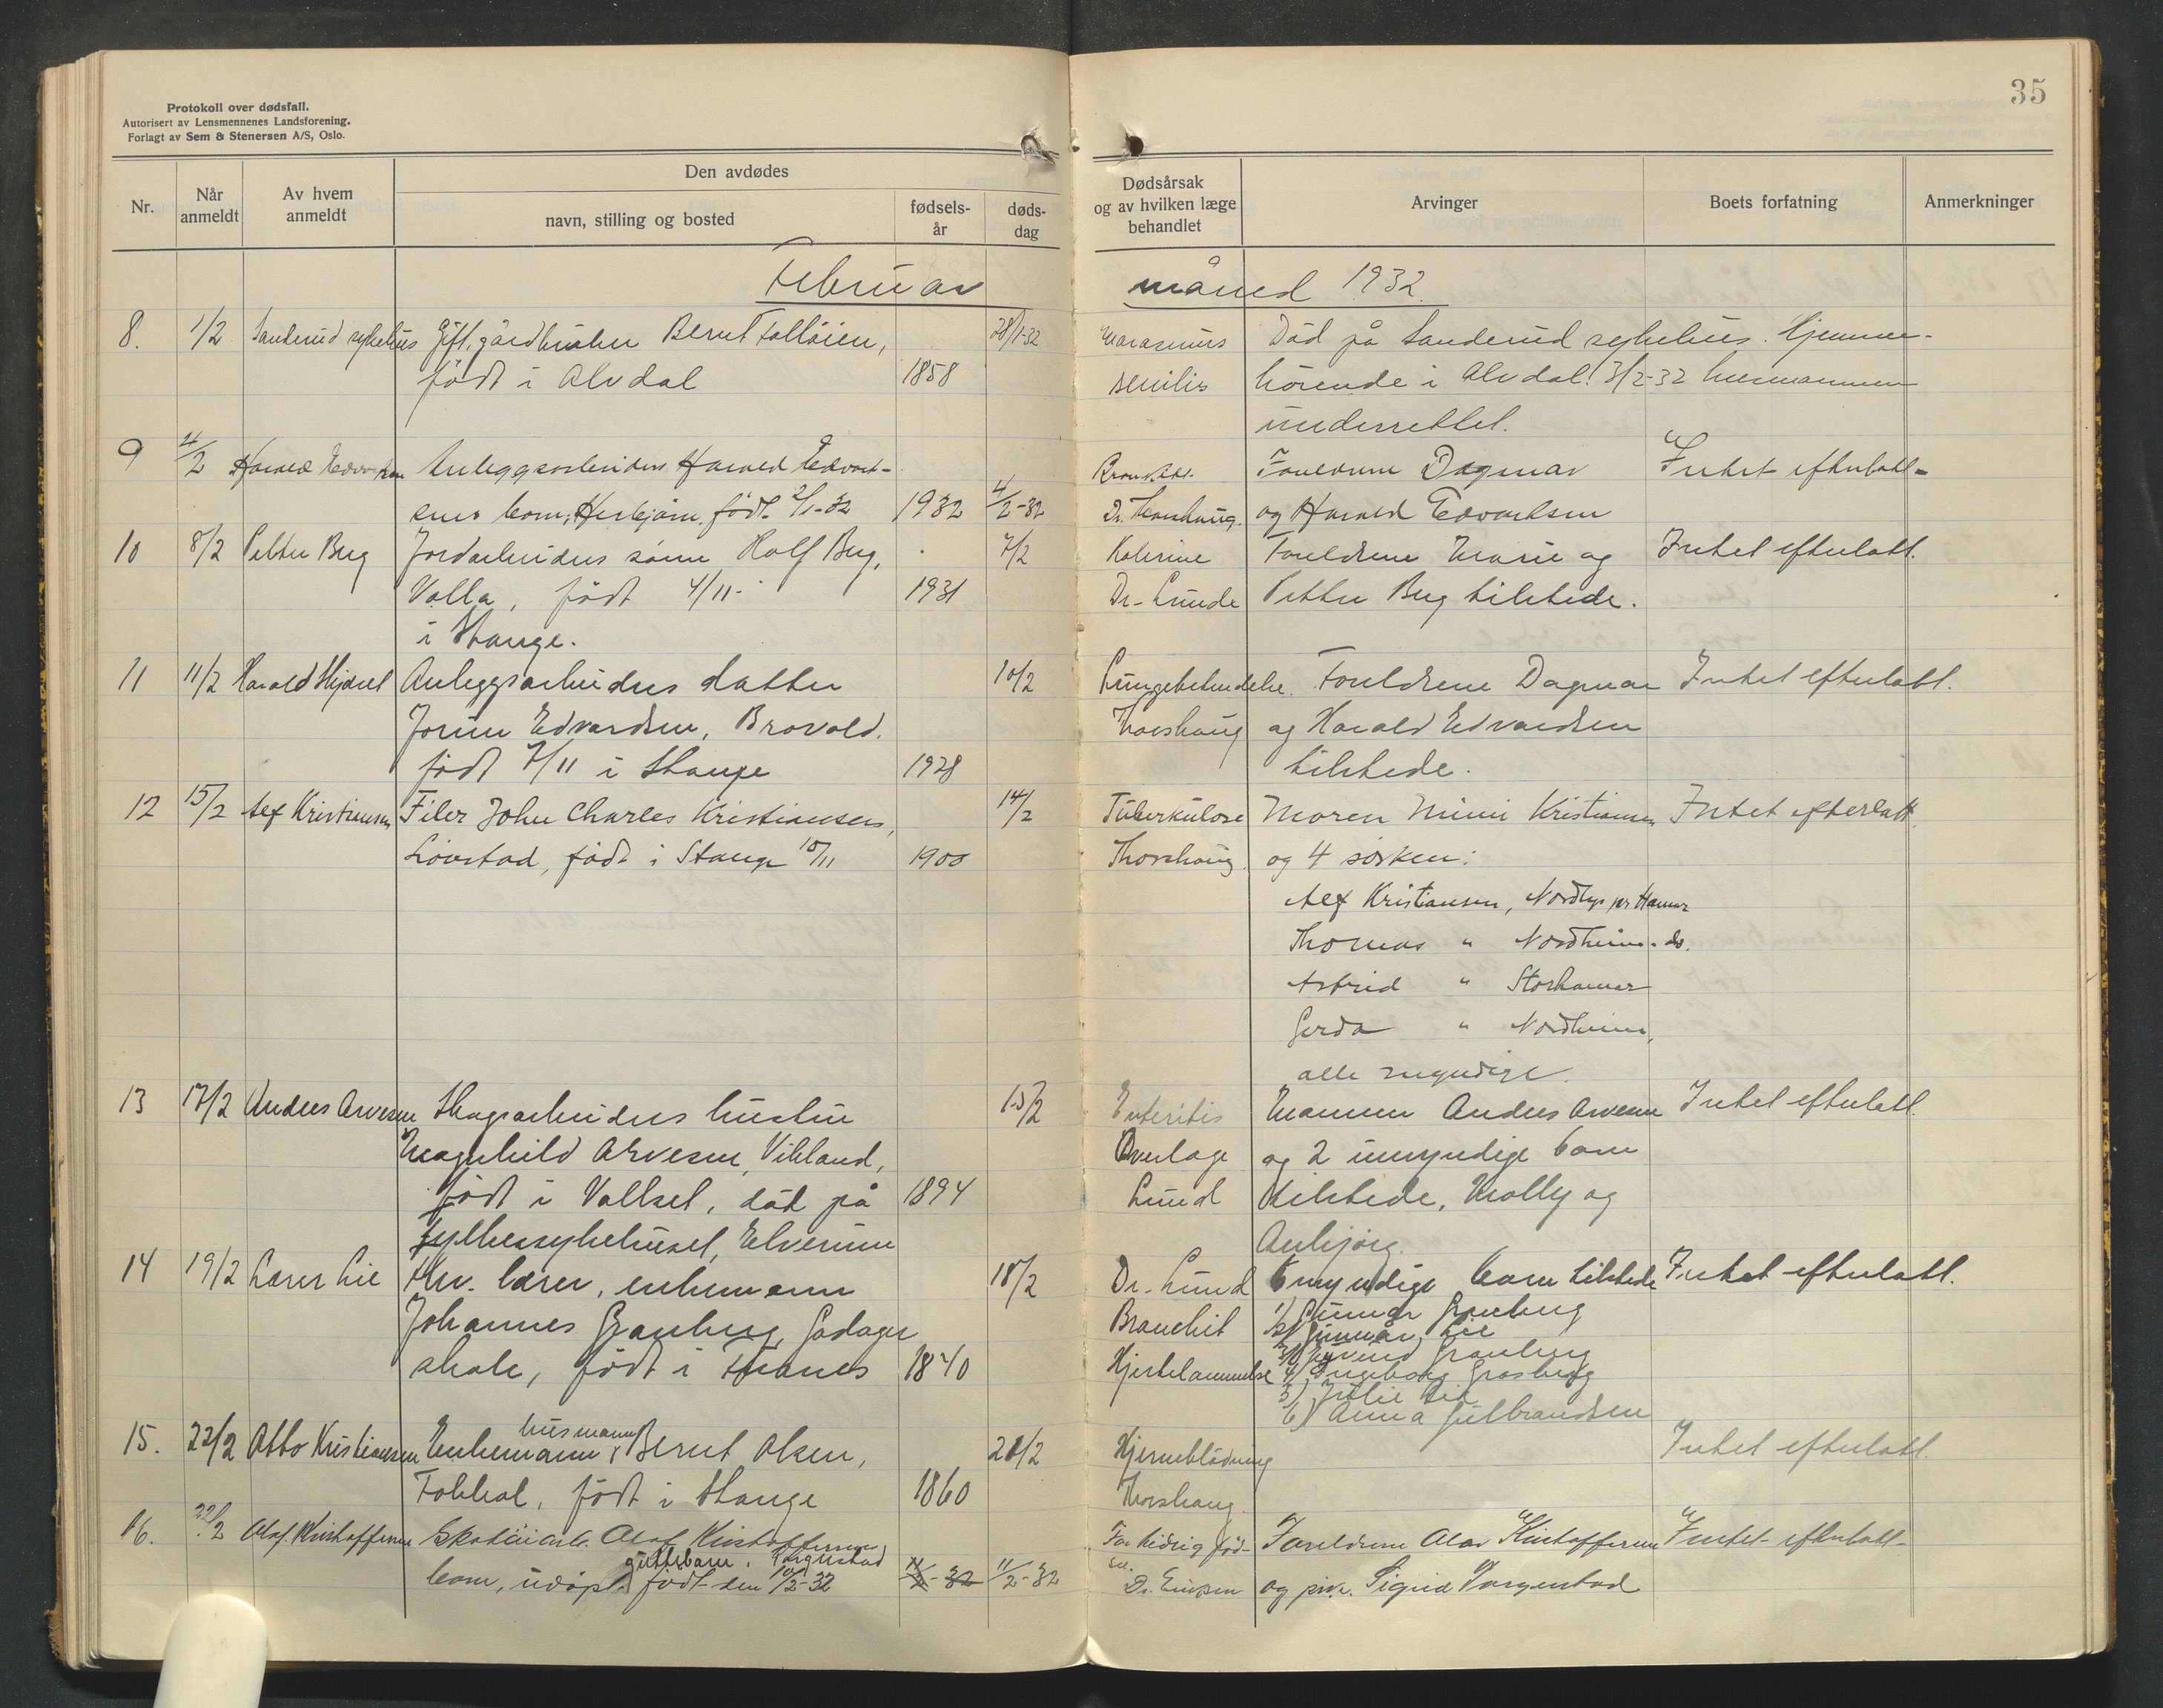 Protokoll over dødsfall.
Autorisert av Lensmennenes Landsforening.
Forlagt av Sem & Stenersen A/S, Oslo.
35
Nr.
Når anmeldt
Av hvem anmeldt
Den avdødes
navn, stilling og bosted
fødsels-år
døds-dag
Dødsårsak og av hvilken læge behandlet
Arvinger
Boets forfatning
Anmerkninger
Februar måned 1932.
8. 1/2 Sanderud sykehus Gift. gårdbruker Bernt 28/1-32 Marasmus Død på Sanderud sykehus. Hjemme-
født i Alvdal 1858 senilis hørende i Alvdal. 3/2-32 lensmannen
underrettet.
9 4/2 Harald Edvardsen Anleggsarbeiders Harald Edvard- Bronkitt. Foreldrene Dagmar Intet efterlatt-
sens barn, født 2/1-32 1932 4/2-32 Dr. Thorshaug. og Harald Edvardsen
10 8/2 Petter Berg Jordarbeiders sønn Rolf Berg, 7/2 Foreldrene Marie og Intet efterlatt.
Valla, født 4/11- 1931 Dr. Lunde Petter Berg tilstede.
i Stange.
11 11/2 Harald Anleggsarbeiders datter 10/2 Lungebetendelse. Foreldrene Dagmar Intet efterlatt.
Jorun Edvardsen, Brovold. Thorshaug og Harald Edvardsen
født 7/11 i Stange 1928 tilstede.
12 15/2 Alf Kristiansen Filer John Charles Kristiansen, 14/2 Tuberkulose Moren Mimi Kristiansen Intet efterlatt.
Løvstad, født i Stange 10/11 1900 Thorshaug. og 4 søsken:
Alf Kristiansen, pr Hamar
Thomas " Nordheim - do.
Astrid " Storhamar
Gerda " Nordheim,
alle myndige.
13 17/2 Anders Arvesen Skogsarbeiders hustru 15/2 Enteritis Mannen Anders Arvesen Intet efterlatt.
Magnhild Arvesen, Vikland, Overlæge og 2 umyndige barn
født i Vallset, død på 1894 Lund tilstede, Molly og
fylkessykehuset, Elverum Anbjørg.
14 19/2 Lærer Lie Fhv. lærer, enkemann 18/2 Dr. Lund 6 myndige barn tilstede Intet efterlatt.
Johannes Granberg, skole, født i 1840 Bronchit 1) Gunnar Granberg
2) Gunnar Lie
3) Eyvind Granberg
Hjertelammelse 4) Ingeborg Granberg
5) Julie Lie
6) Anna Gulbrandsen
15. 22/2 Otto Kristiansen Enkemann, husmann Bernt Olsen, 21/2 Hjerneblødning Intet efterlatt.
født i Stange 1860 Thorshaug.
16. 22/2 Olaf Kristoffersen Olaf Kristoffersens For tidlig fød- Foreldrene Olav Kristoffersen Intet efterlatt-
barn, udøpt guttebarn, født den 10/2-32 11/2-32 sel. Dr. og pike Sigrid